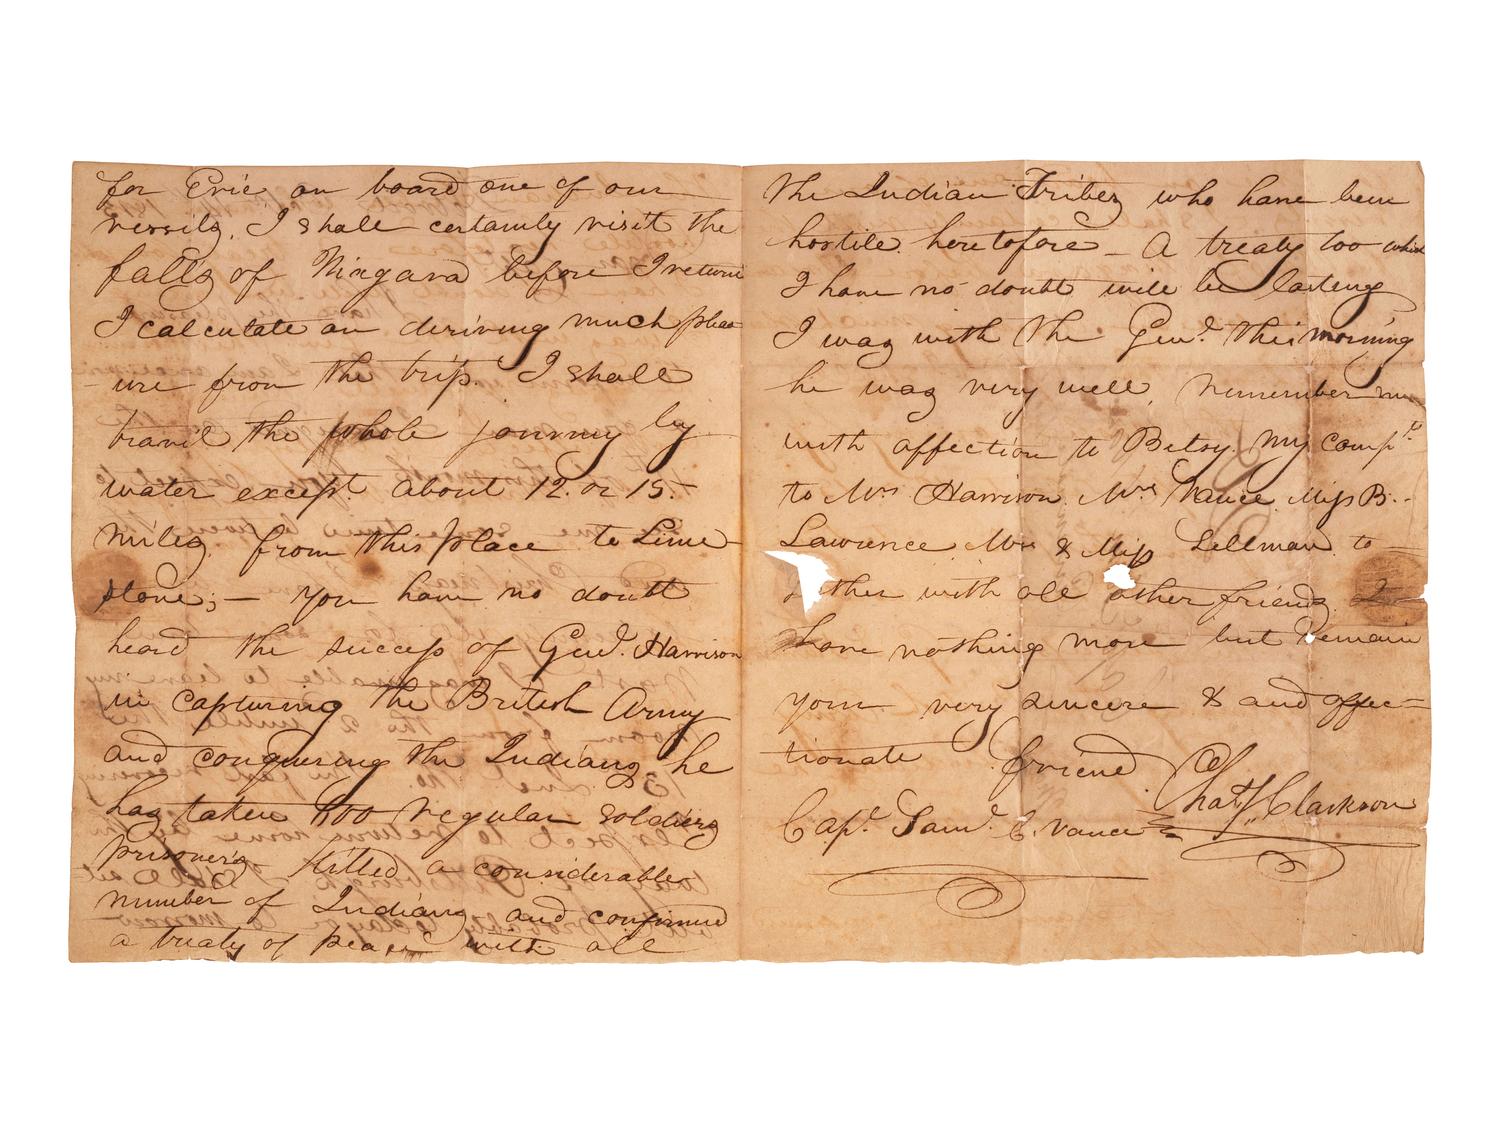 for Erie on board one of our
vessils. I shall certainly visit the
falls of Niagara before I return
I calculate on deriving much pleas
- ure from the trip. I shall
travil the whole journey by
water except about 12. or 15.
miles from this place to Lime
stone; — you have no doubt
heard the success of Genl. Harrison
in capturing the British Army
and conquering the Indians he
has taken 600 regular soldiers
prisoners killed a considerable
number of Indians and confirmed
a treaty of peace with all
the Indian Tribes who have been
hostile heretofore — A treaty too which
I have no doubt will be lasting
I was with the Genl. this morning
he was very well, remember me
with affection to Betsy. My compts.
to Mrs Harrison Mrs Vance Miss B.
Lawrence Mrs & Miss Sellman to
gether with all other friends. I
have nothing more but remain
your very sincere & and affec=
tionate friend Chas. Clarkson
Capt. Saml. C. Vance